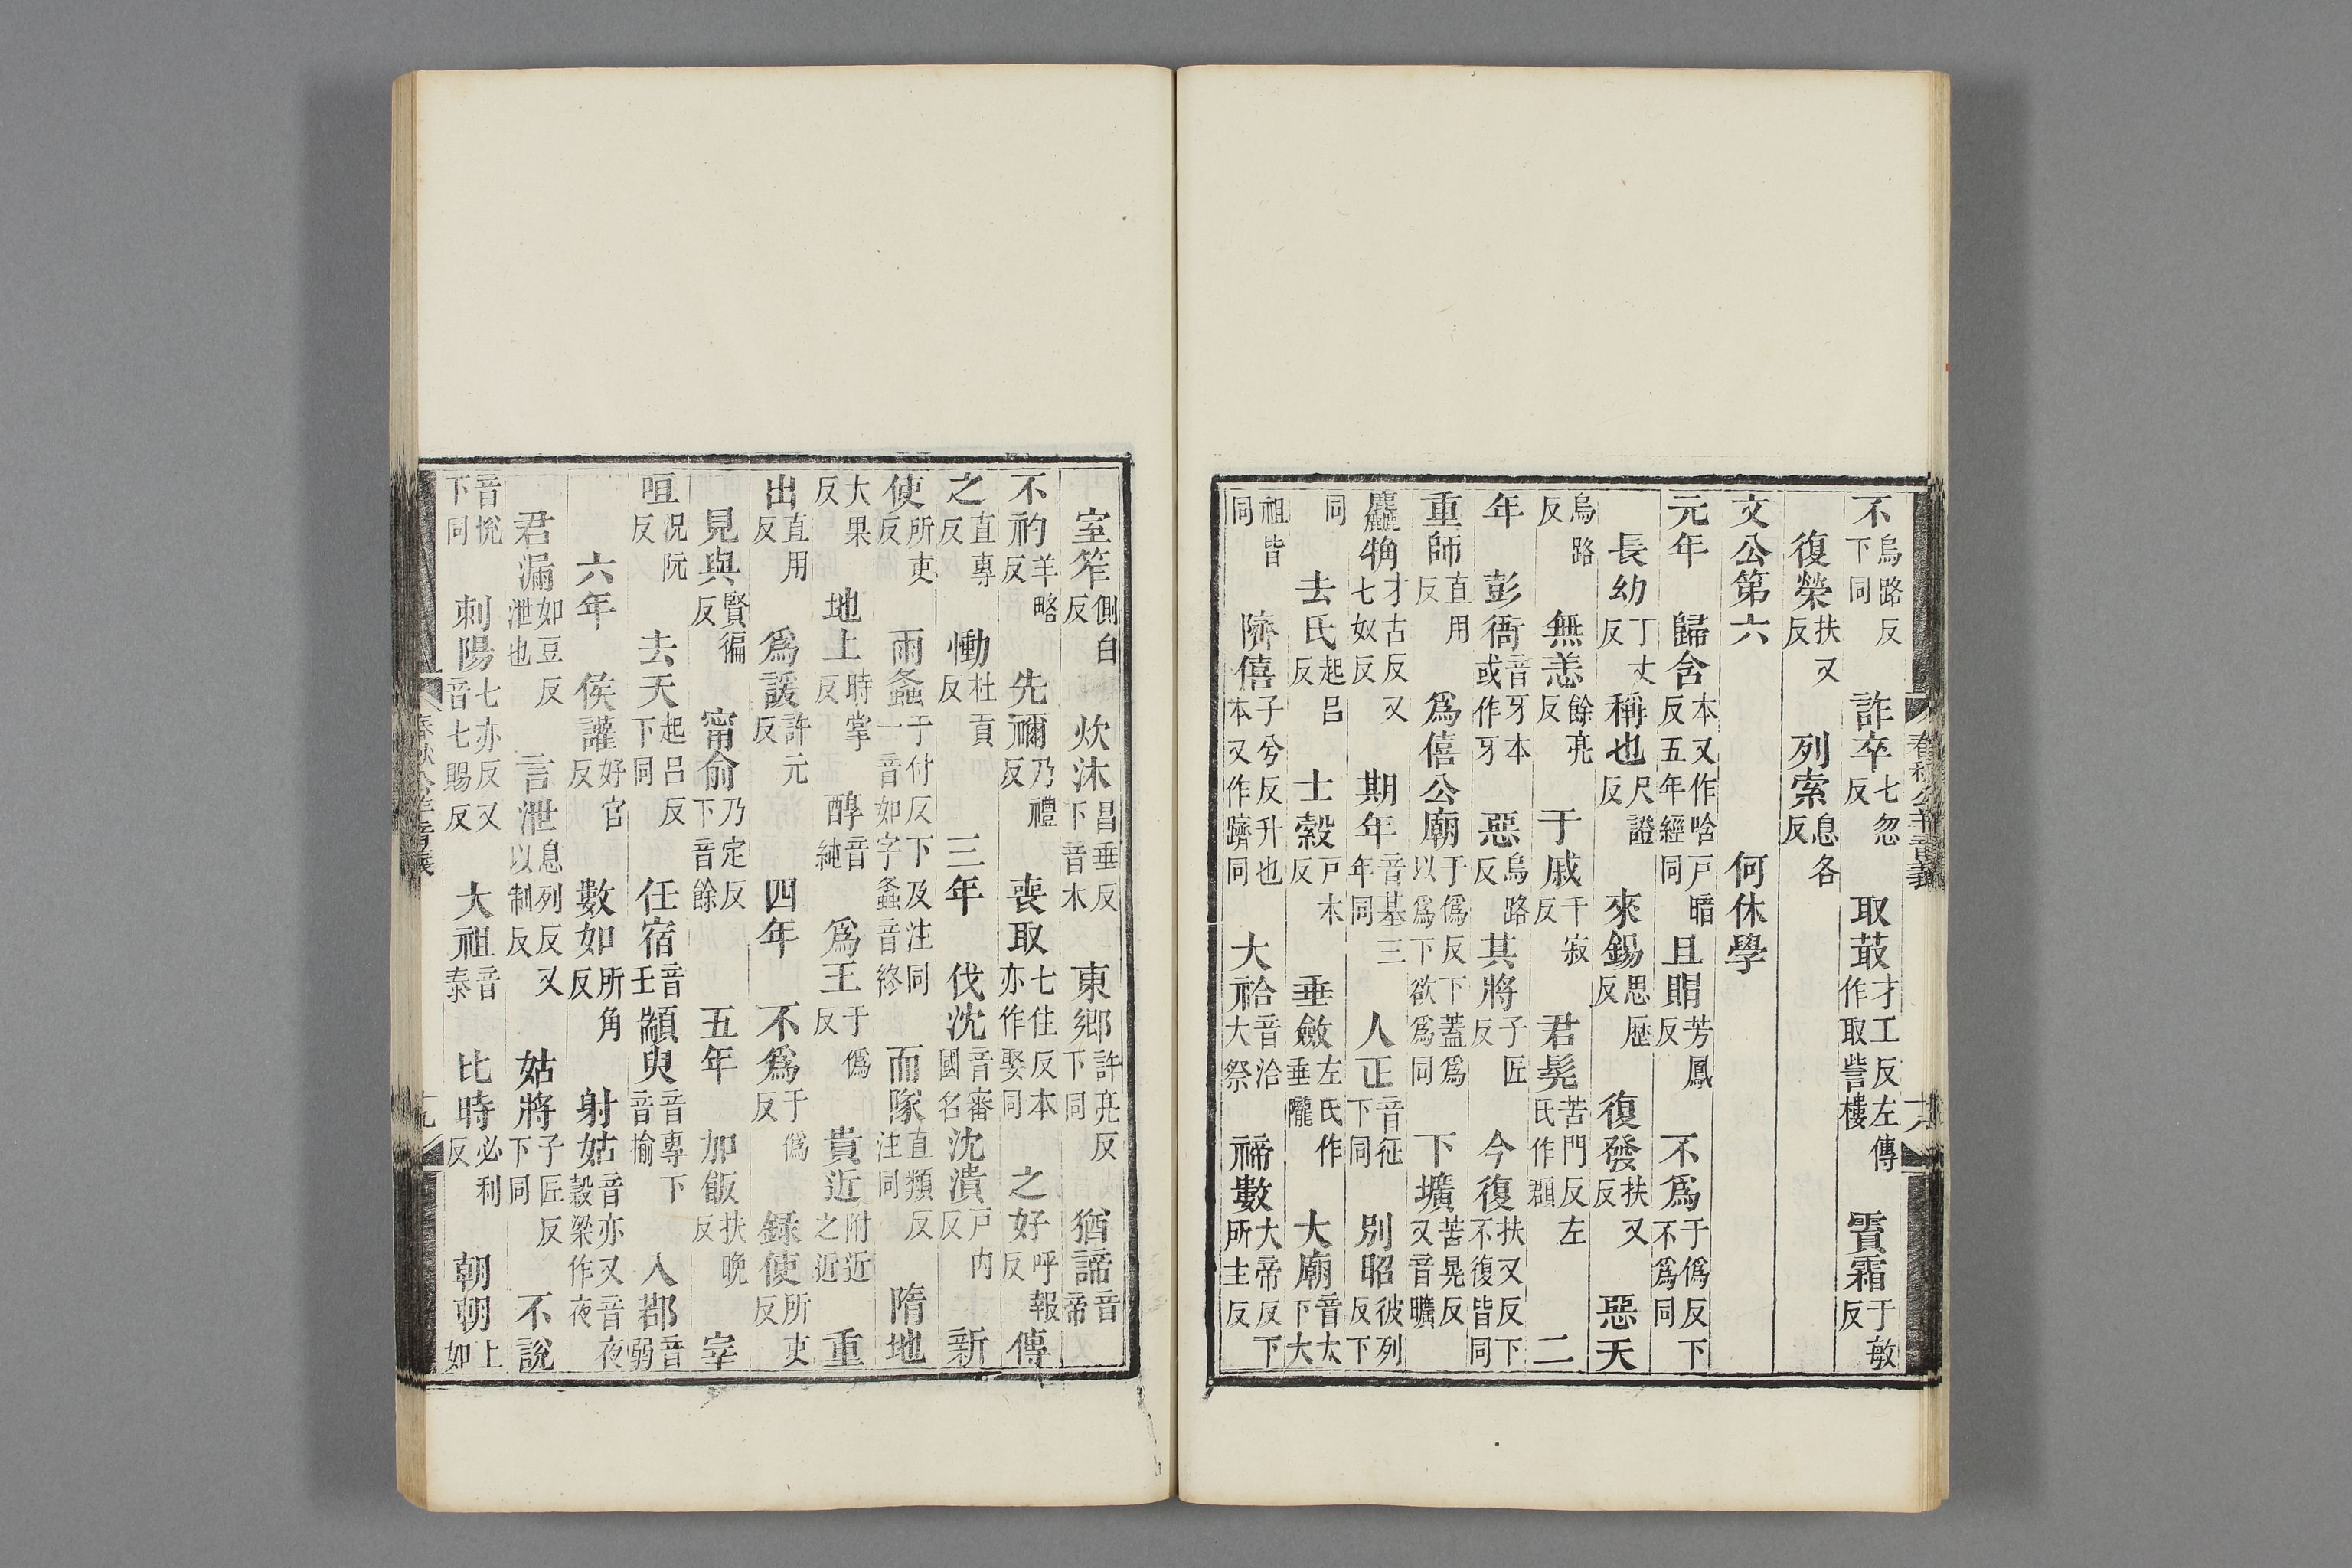 不烏路反下同 詐卒七忽反 取菆才工反左傳作取訾樓 霣霜于敏反
復榮扶又反 列索息各反
文公第六 何休學
元年 歸含本又作唅戶暗反五年經同 且賵芳鳳反 不爲于僞反下不爲同
長幼丁丈反 稱也尺證反 來錫思歷反 復發扶又反 惡天
烏路反 無恙餘亮反 于戚千寂反 君髡苦門反左氏作頵 二
年 彭衙音牙本或作牙 惡烏路反 其將子匠反 今復扶又反下不復皆同
重師直用反 爲僖公廟于僞反下以爲下欲爲同蓋爲 下壙苦晃反又音曠
麤觕才古反又七奴反 期年音基三年同 人正音征下同 別昭彼列反下
同 去氏起呂反 士縠戶木反 垂斂左氏作垂隴 大廟音太下大
祖皆同 隮僖子兮反升也本又作躋同 大祫音洽大祭 禘數大帝反下所主反
春秋公羊音義
室笮側白反 炊沐昌垂反下音木 東鄉許亮反下同 猶諦音帝
不礿羊略反 先禰乃禮反 喪取七住反本亦作娶同 之好呼報反 傳
之直專反 慟杜貢反 三年 伐沈音審國名 沈潰戶内反 新
使所吏反 雨螽于付反下及注同一音如字螽音終 而隊直類反注同 隋地
大果反 地上時掌反 醇音純 爲王于僞反 貴近附近之近 重
出直用反 爲諼許元反 四年 不爲于僞反 録使所吏反
見與賢徧反 甯俞乃定反下音餘 五年 加飯扶晚反 宰
咺況阮反 去天起呂反下同 任宿音壬 顓臾音專下音揄 入鄀音弱
六年 侯讙好官反 數如所角反 射姑音亦又音夜穀梁作夜
君漏如豆反泄也 言泄息列反又以制反 姑將子匠反下同 不說
音悅下同 刺陽七亦反又音七賜反 大祖音泰 比時必利反 朝朝上如
春秋公羊音義 十九